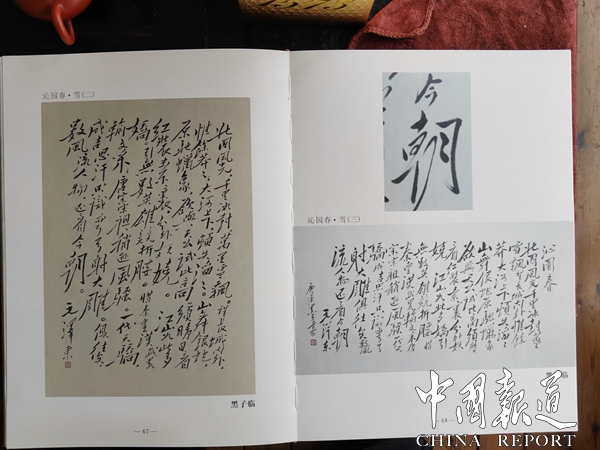 沁园春·雪(二)
北国风光千里冰封万里雪飘望长城内外
惟余莽々大河上下顿失滔々山舞银蛇
原驰蜡象欲与天公试比高须晴日看
红装素裹分外妖娆江山如此多
娇引无数英雄竞折腰惜秦皇汉武略
输文采唐宗宋祖稍逊风骚一代天骄
成吉思汗只识弯弓射大雕俱往矣
数风流人物还看今朝
毛泽东
黑子临
—67—
今朝
沁园春·雪(三)
沁园春
北国风光千里冰封万里
雪飘望长城内外惟余
莽々大河上下顿失滔々
山舞银蛇原驰蜡象
欲与天公试比高须晴日
看红装素裹分外妖
娆江山如此多娇引
无数英雄竞折腰惜
秦皇汉武略输文采唐
宗宋祖稍逊风骚一代天
骄成吉思汗只识弯弓
射大雕俱往矣数风
流人物还看今朝
毛泽东
—68—
中国报道
CHINA REPORT